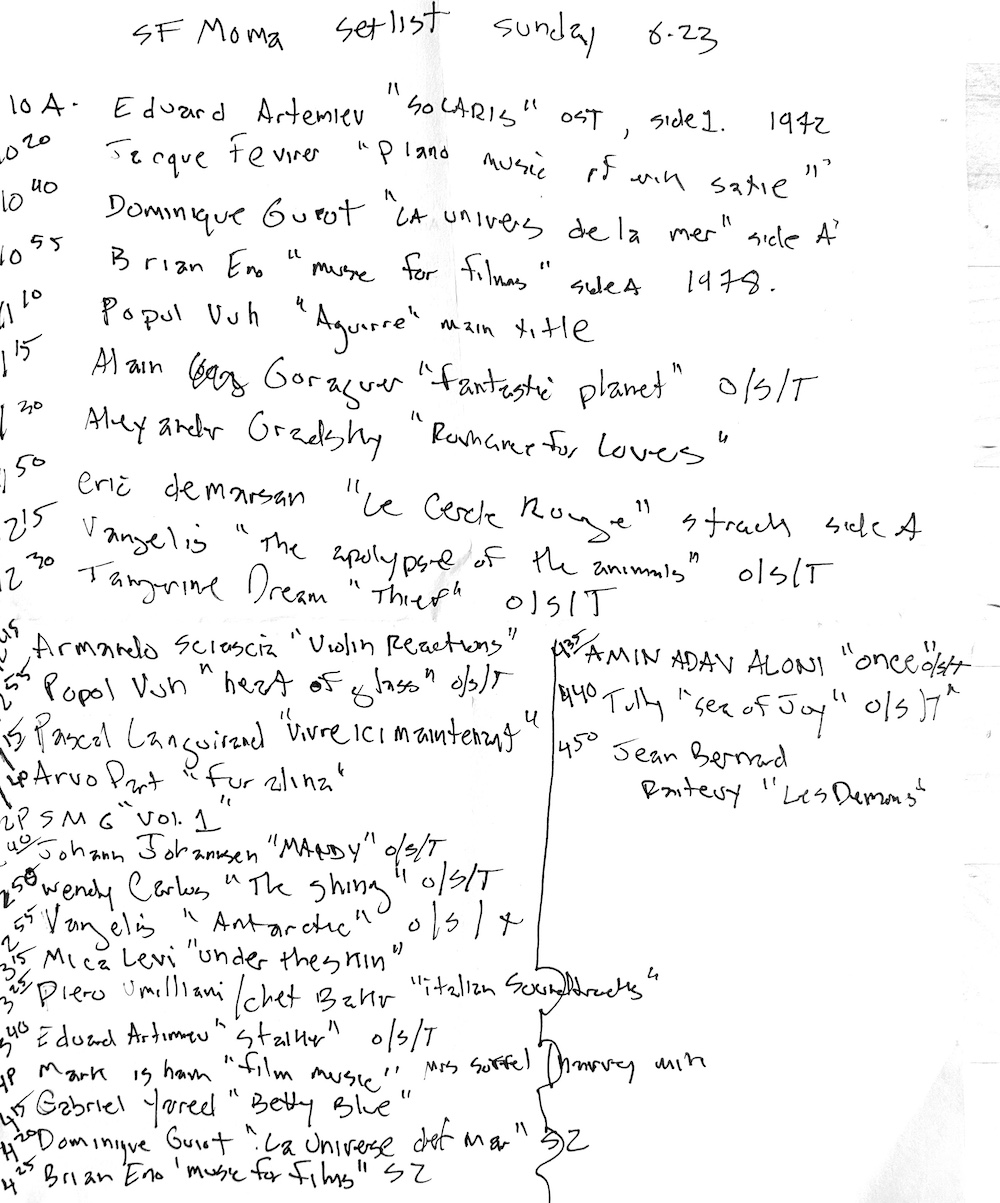 SF Moma setlist sunday 6.23
10 A. Eduard Artemiev "SOLARIS" OST, side 1. 1972
10 20 Jacque Fevirer "Piano music of erik satie"
10 40 Dominique Guiot "LA univers de la mer" side A
10 55 Brian Eno "music for films" side A 1978.
11 10 Popul Vuh "Aguirre" main title
11 15 Alain Goraguer "fantastic planet" O/S/T
11 30 Alexander Gradsky "Romance for Loves"
11 50 eric demarsan "Le Cercle Rouge" 5 track side A
12 15 Vangelis "The apolypse of the animals" O/S/T
12 30 Tangerine Dream "Thief" O/S/T
45 Armando Sciascia "Violin Reactions"
12 55 Popol Vuh "heart of glass" O/S/T
15 Pascal Languirand "Vivre ici maintenant"
Arvo Part "fur alina"
2P S M G "Vol. 1"
40 Johann Johannsen "MANDY" O/S/T
2 50 Wendy Carlos "The shing" O/S/T
2 55 Vangelis "Antarctic" O/S/T
3 15 Mica Levi "under the skin"
3 25 Piero Umilliani/chet Baker "italian Soundtracks"
3 40 Eduard Artimev "stalker" O/S/T
4P Mark isham "film music" Mrs soffel harvey milk
4 15 Gabriel Yared "Betty Blue"
4 20 Dominique Guiot "La Universe def mar" S2
4 25 Brian Eno 'music for films" S2
4 35 AMIN ADAV ALONI "once" O/S/T
4 40 Tully "sea of Joy" O/S/T"
4 50 Jean Bernard
Raiteux "Les Demons"